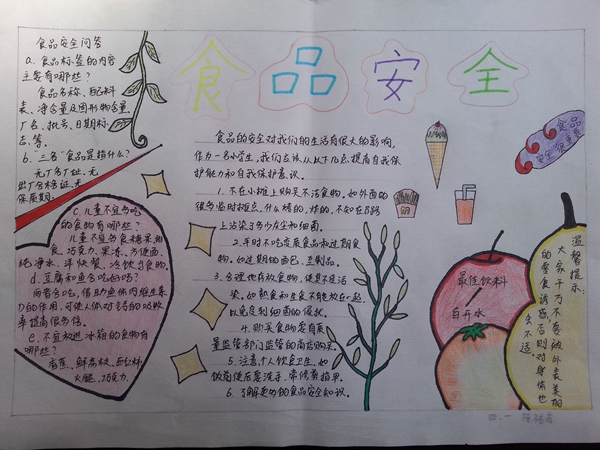 食品安全
食品安全问答
a. 食品标签的内容
主要有哪些?
食品名称、配料
表、净含量及固形物含量、
厂名、批号、日期标
志等。
b. "三无"食品是指什么?
无厂名厂址、无
出厂合格证、无
保质期。
c. 儿童不宜多吃
的食物有哪些?
儿童不宜多食糖果、甜
食、巧克力、果冻、方便面、
纯净水、洋快餐、冷饮等食物。
d. 豆腐和鱼合吃好吗?
两者合吃,借助鱼体内维生素
D的作用,可使人体对钙的吸收
率提高很多倍。
e. 不宜放进冰箱的食物有
哪些?
香蕉、鲜荔枝、西红柿、
火腿、巧克力。
食品的安全对我们的生活有很大的影响,
作为一名小学生,我们应该从以下几点提高自我保
护能力和自我保护意识。
1. 不在小摊上购买不洁食物。如外面的
很多临时摊点,什么烤的,炸的,不知在马路
上沾染了多少灰尘和细菌。
2. 平时不吃变质食品和过期食
物。如过期的面包、豆制品。
3. 合理地存放食物,使其不受污
染。如熟食和生食不能放在一起,
以免受到细菌的侵扰。
4. 购买食物要有质
量监管部门监管的商店购买。
5. 注意个人饮食卫生。如
饭前便后要洗手,常修剪指甲。
6. 了解更多的食品安全知识。
食品
安全很重要
最佳饮料
白开水
温馨提示:
大家千万不要被外表美丽
的零食诱惑,否则对身体也
会不适。
四.一